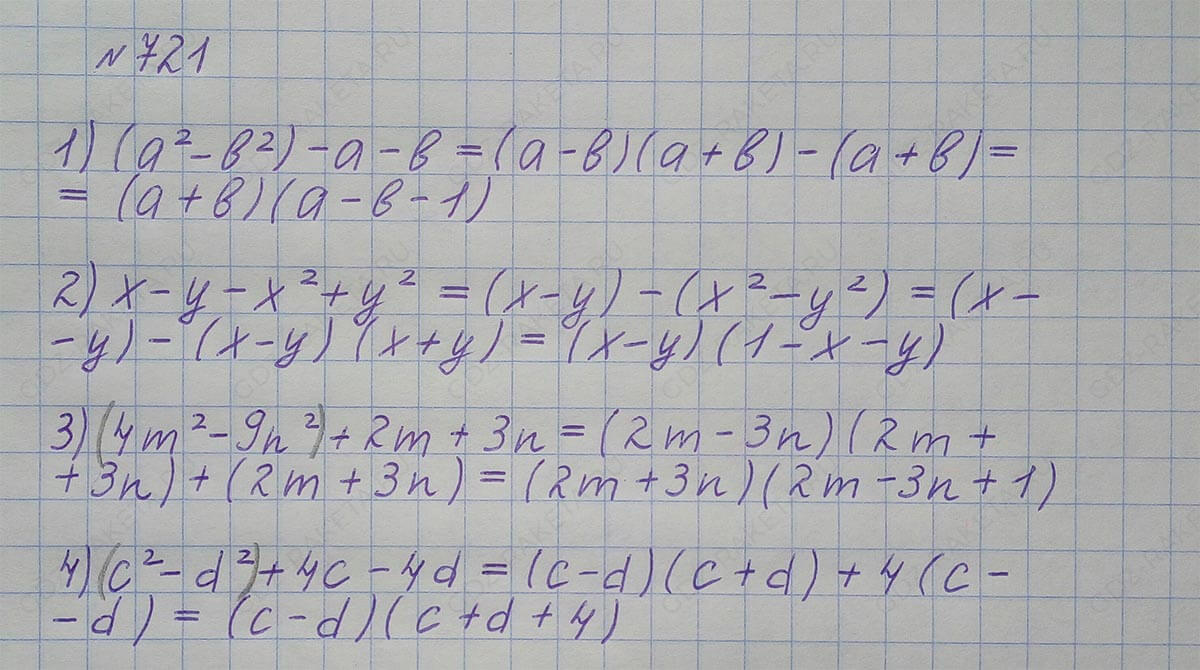 №721
1) (a²-b²)-a-b=(a-b)(a+b)-(a+b)=
=(a+b)(a-b-1)
2) x-y-x²+y²=(x-y)-(x²-y²)=(x-
-y)-(x-y)(x+y)=(x-y)(1-x-y)
3) (4m²-9n²)+2m+3n=(2m-3n)(2m+
+3n)+(2m+3n)=(2m+3n)(2m-3n+1)
4) (c²-d²)+4c-4d=(c-d)(c+d)+4(c-
-d)=(c-d)(c+d+4)